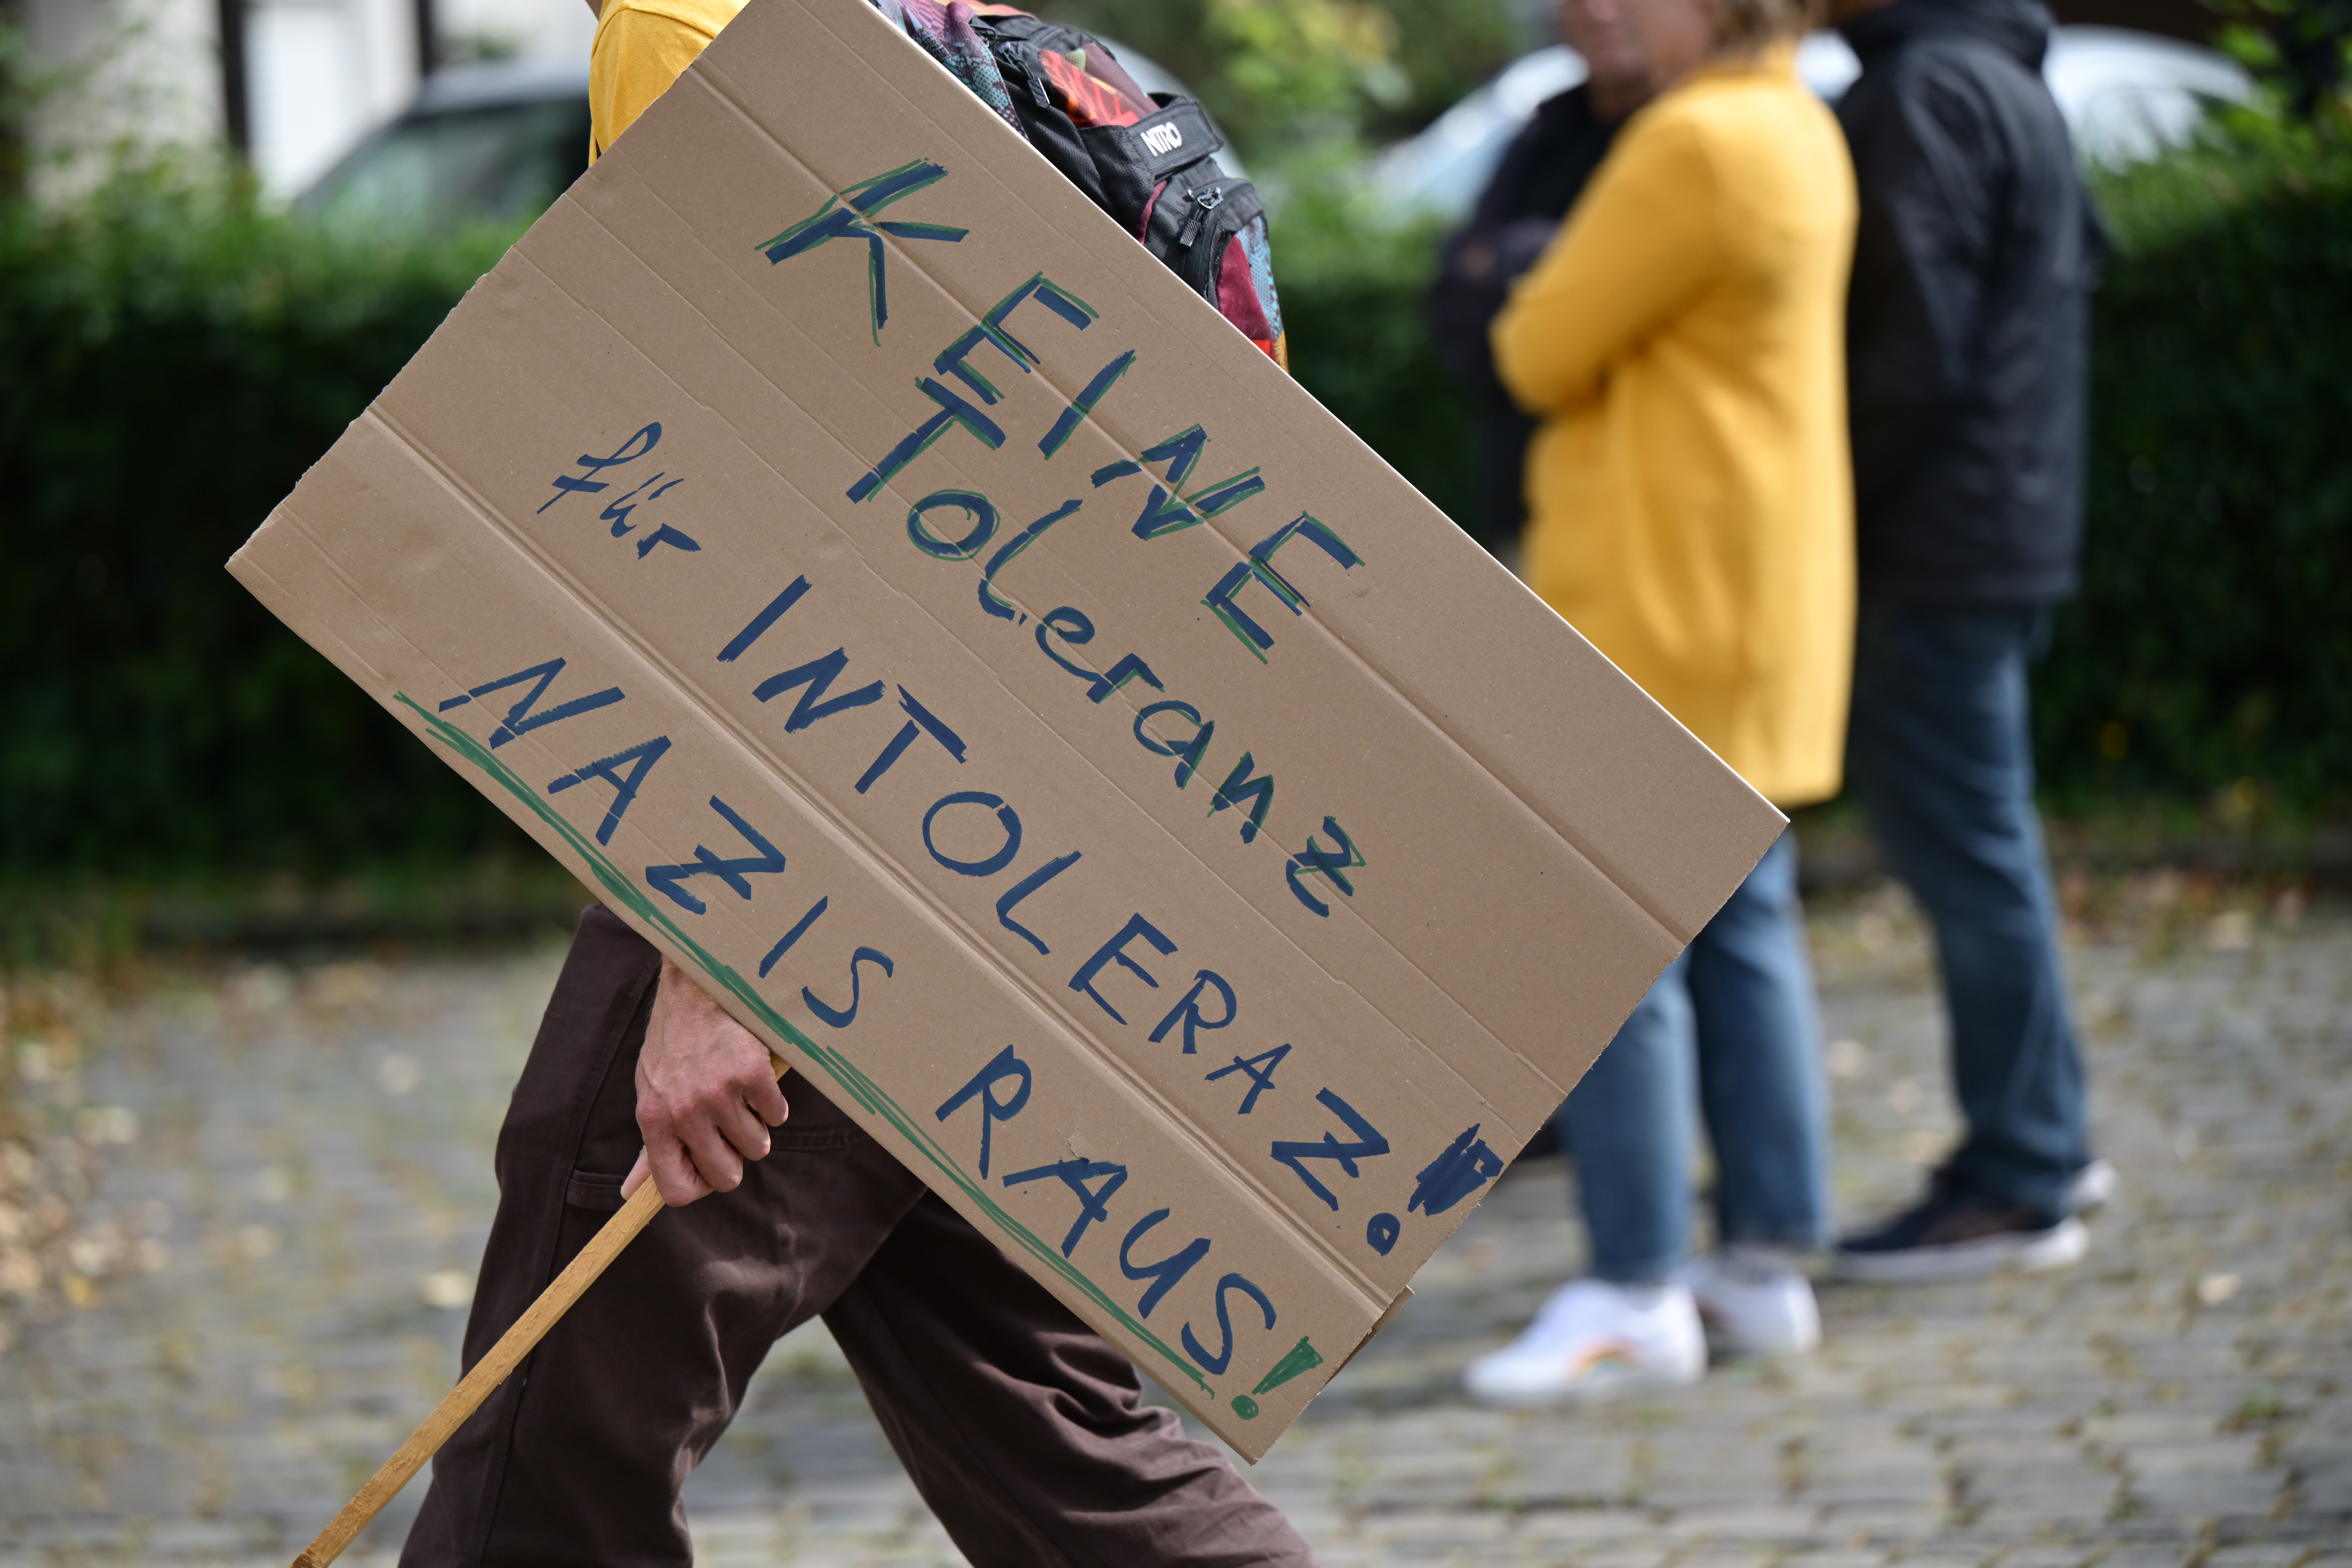 NITRO
KEINE
Toleranz
für INTOLERAZ!
NAZIS RAUS!